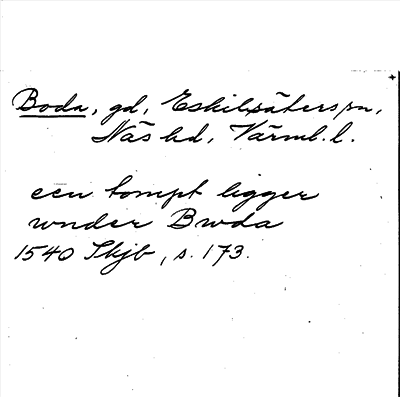 Boda, gd, Eskilsäters sn,
Näs hd, Värml. l.
een tompt ligger
wnder Bwda
1540 Skjb, s. 173.